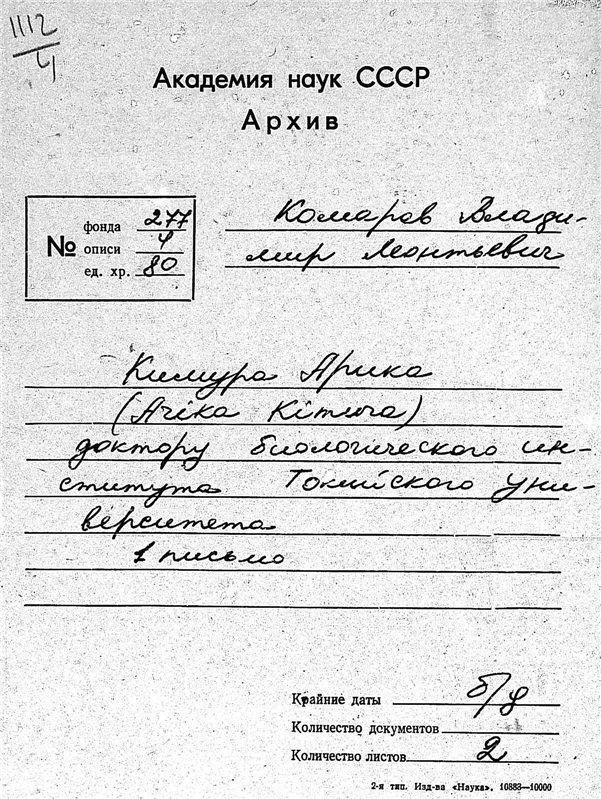 1112
4
Академия наук СССР
Архив
№
фонда 277
описи 4
ед. хр. 80
Комаров Влади-
мир Леонтьевич
Кимура Арика
(Arika Kimura)
доктору биологического ин-
ститута Токийского уни-
верситета
1 письмо
Крайние даты б/д
Количество документов
Количество листов 2
2-я тип. Изд-ва «Наука». 10883—10000